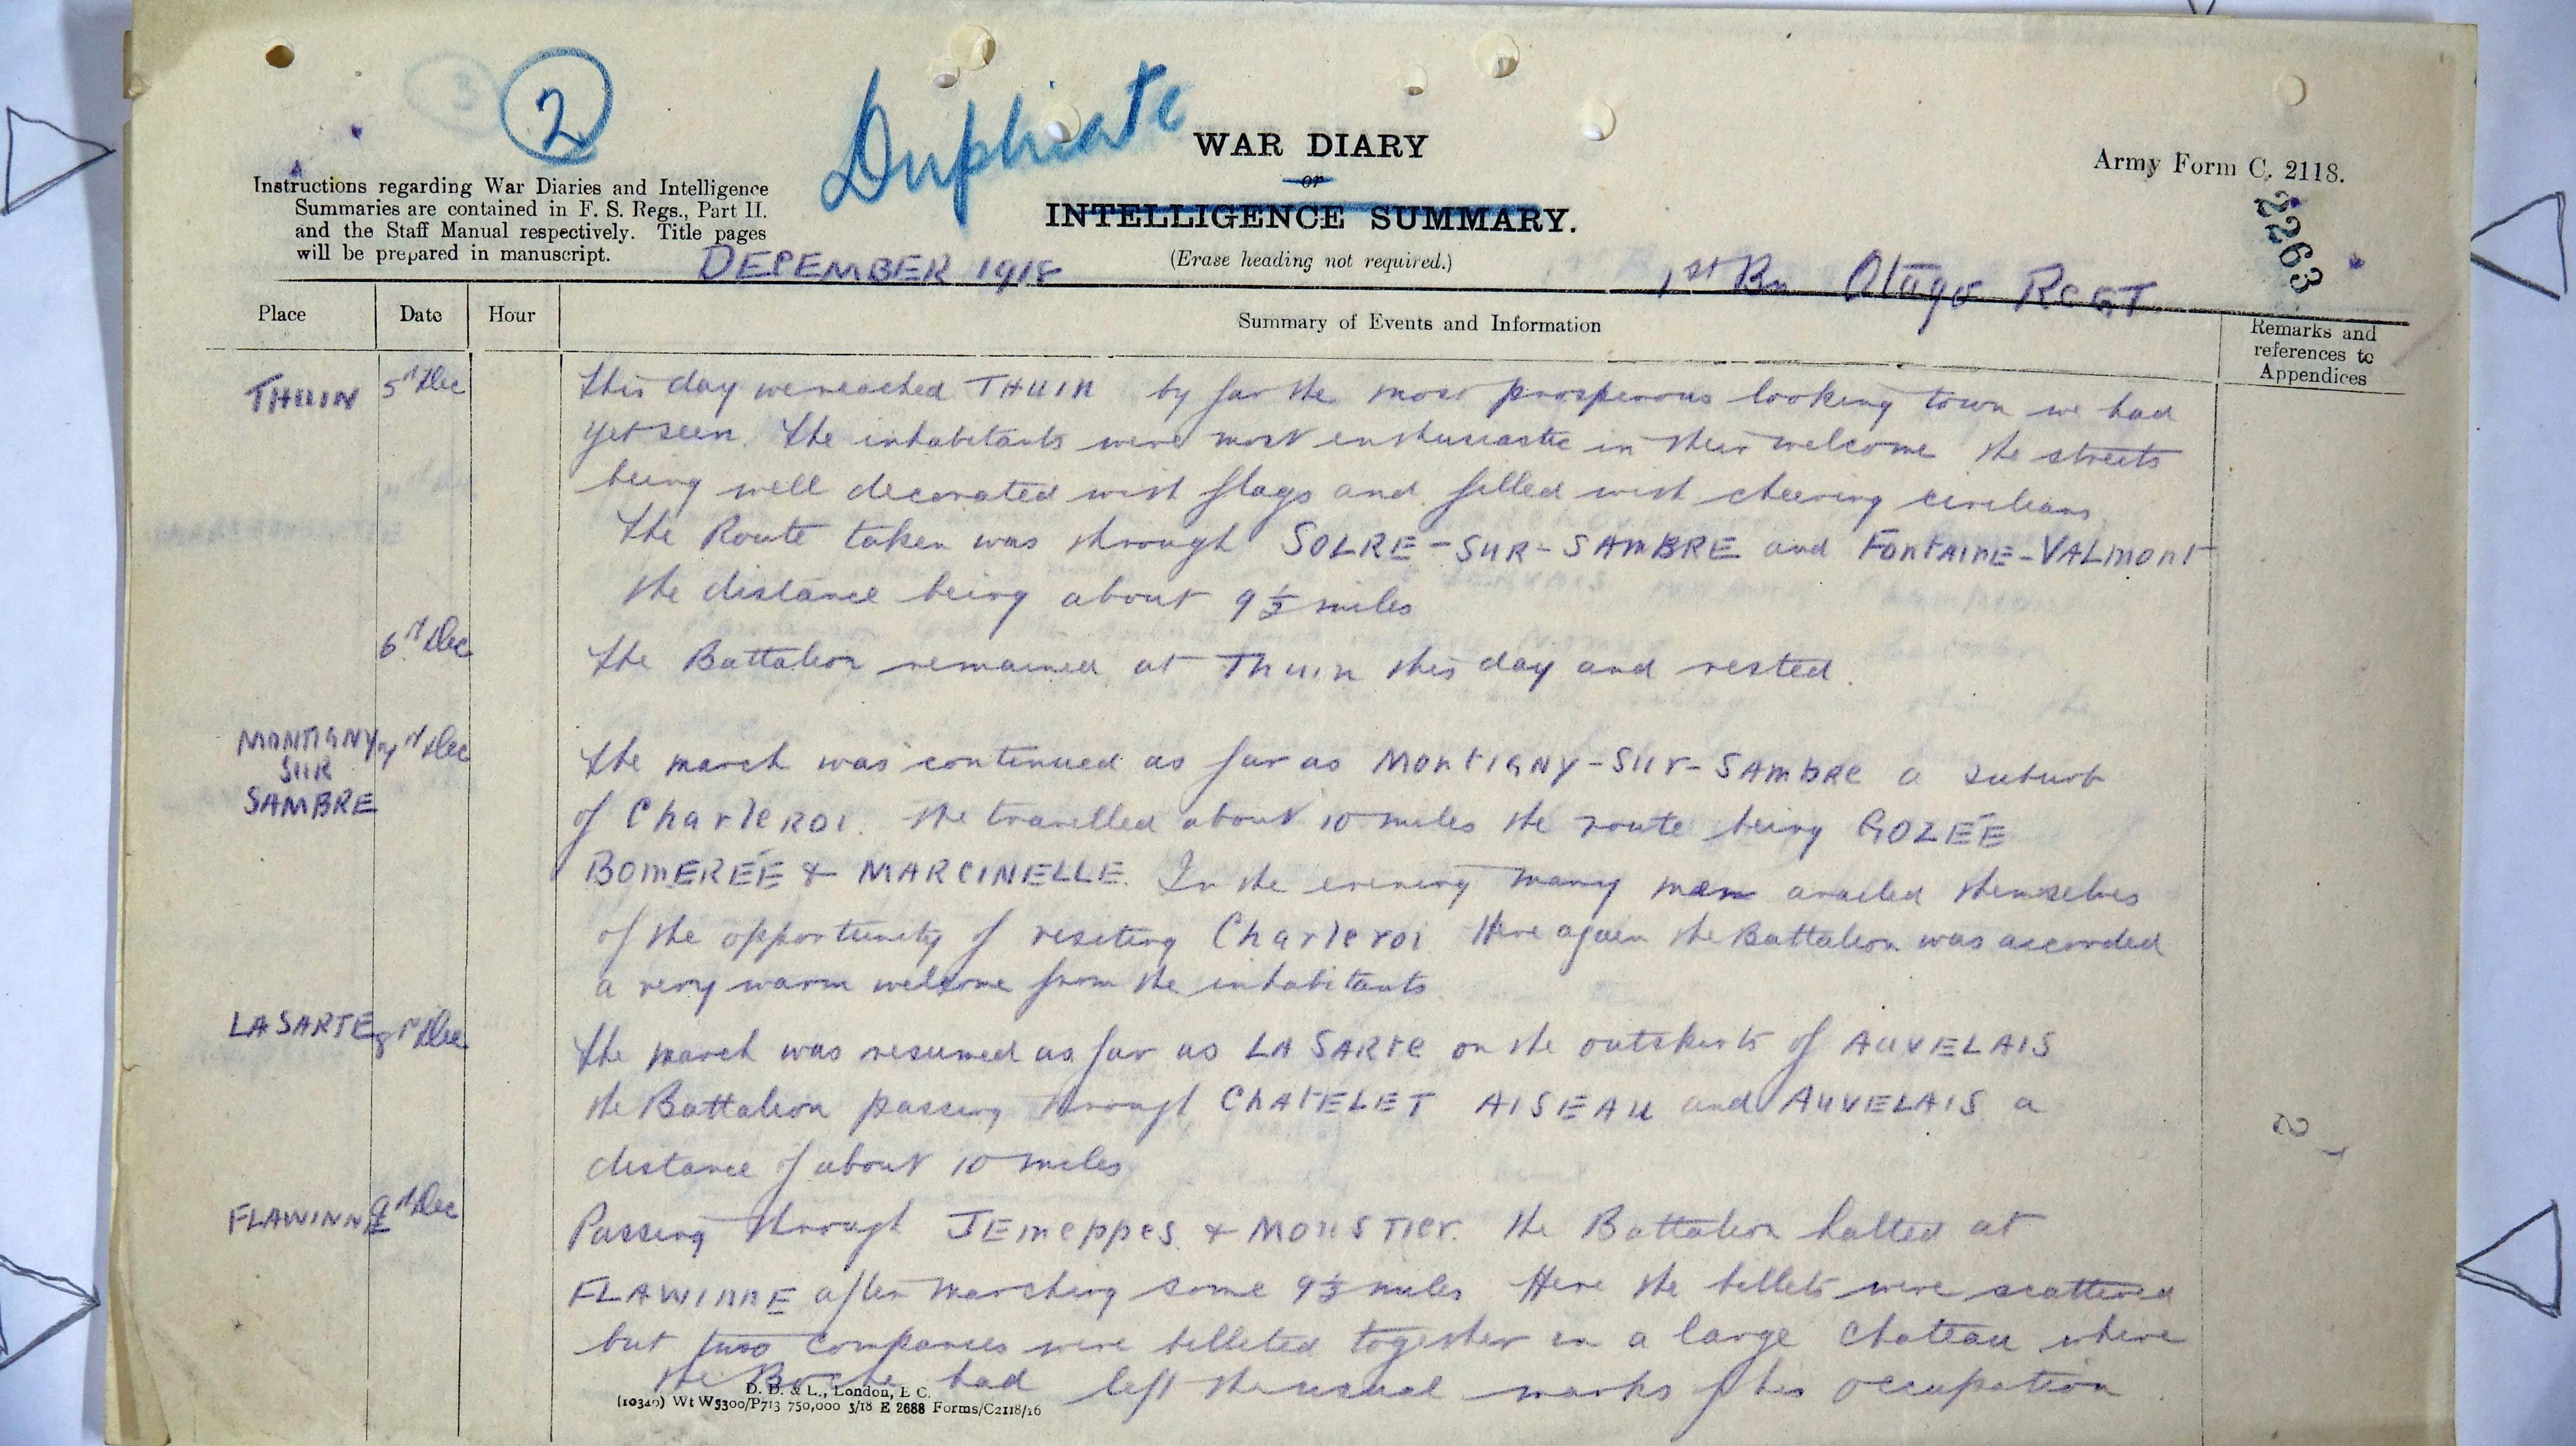 2
Duplicate
WAR DIARY
or
INTELLIGENCE SUMMARY.
(Erase heading not required.)
Army Form C. 2118.
2263
Instructions regarding War Diaries and Intelligence
Summaries are contained in F. S. Regs., Part II.
and the Staff Manual respectively. Title pages
will be prepared in manuscript.
DECEMBER 1918
1st Bn Otago REGT
Place
Date
Hour
Summary of Events and Information
Remarks and
references to
Appendices
THUIN 5th Dec This day we reached THUIN by far the most prosperous looking town we had
yet seen. The inhabitants were most enthusiastic in their welcome the streets
being well decorated with flags and filled with cheering civilians
The Route taken was through SOLRE-SUR-SAMBRE and FONTAINE-VALMONT
the distance being about 9½ miles
6th Dec The Battalion remained at Thuin this day and rested.
MONTIGNY 7th Dec The march was continued as far as MONTIGNY-SUR-SAMBRE a suburb
SUR
SAMBRE
of Charleroi. We travelled about 10 miles the route being GOZÉE
BOMERÉE & MARCINELLE. In the evening many men availed themselves
of the opportunity of visiting Charleroi Here again the Battalion was accorded
a very warm welcome from the inhabitants
LA SARTE 8th Dec The march was resumed as far as LA SARTE on the outskirts of AUVELAIS
the Battalion passing through CHATELET AISEAU and AUVELAIS a
distance of about 10 miles
FLAWINNE 9th Dec Passing through JEMEPPES & MOUSTIER. the Battalion halted at
FLAWINNE after marching some 9½ miles Here the billets were scattered
but two companies were billeted together in a large Chateau where
the Boche had left the usual marks of his occupation
D. D. & L., London, E C.
(10340) Wt W5300/P713 750,000 3/18 E 2688 Forms/C2118/16